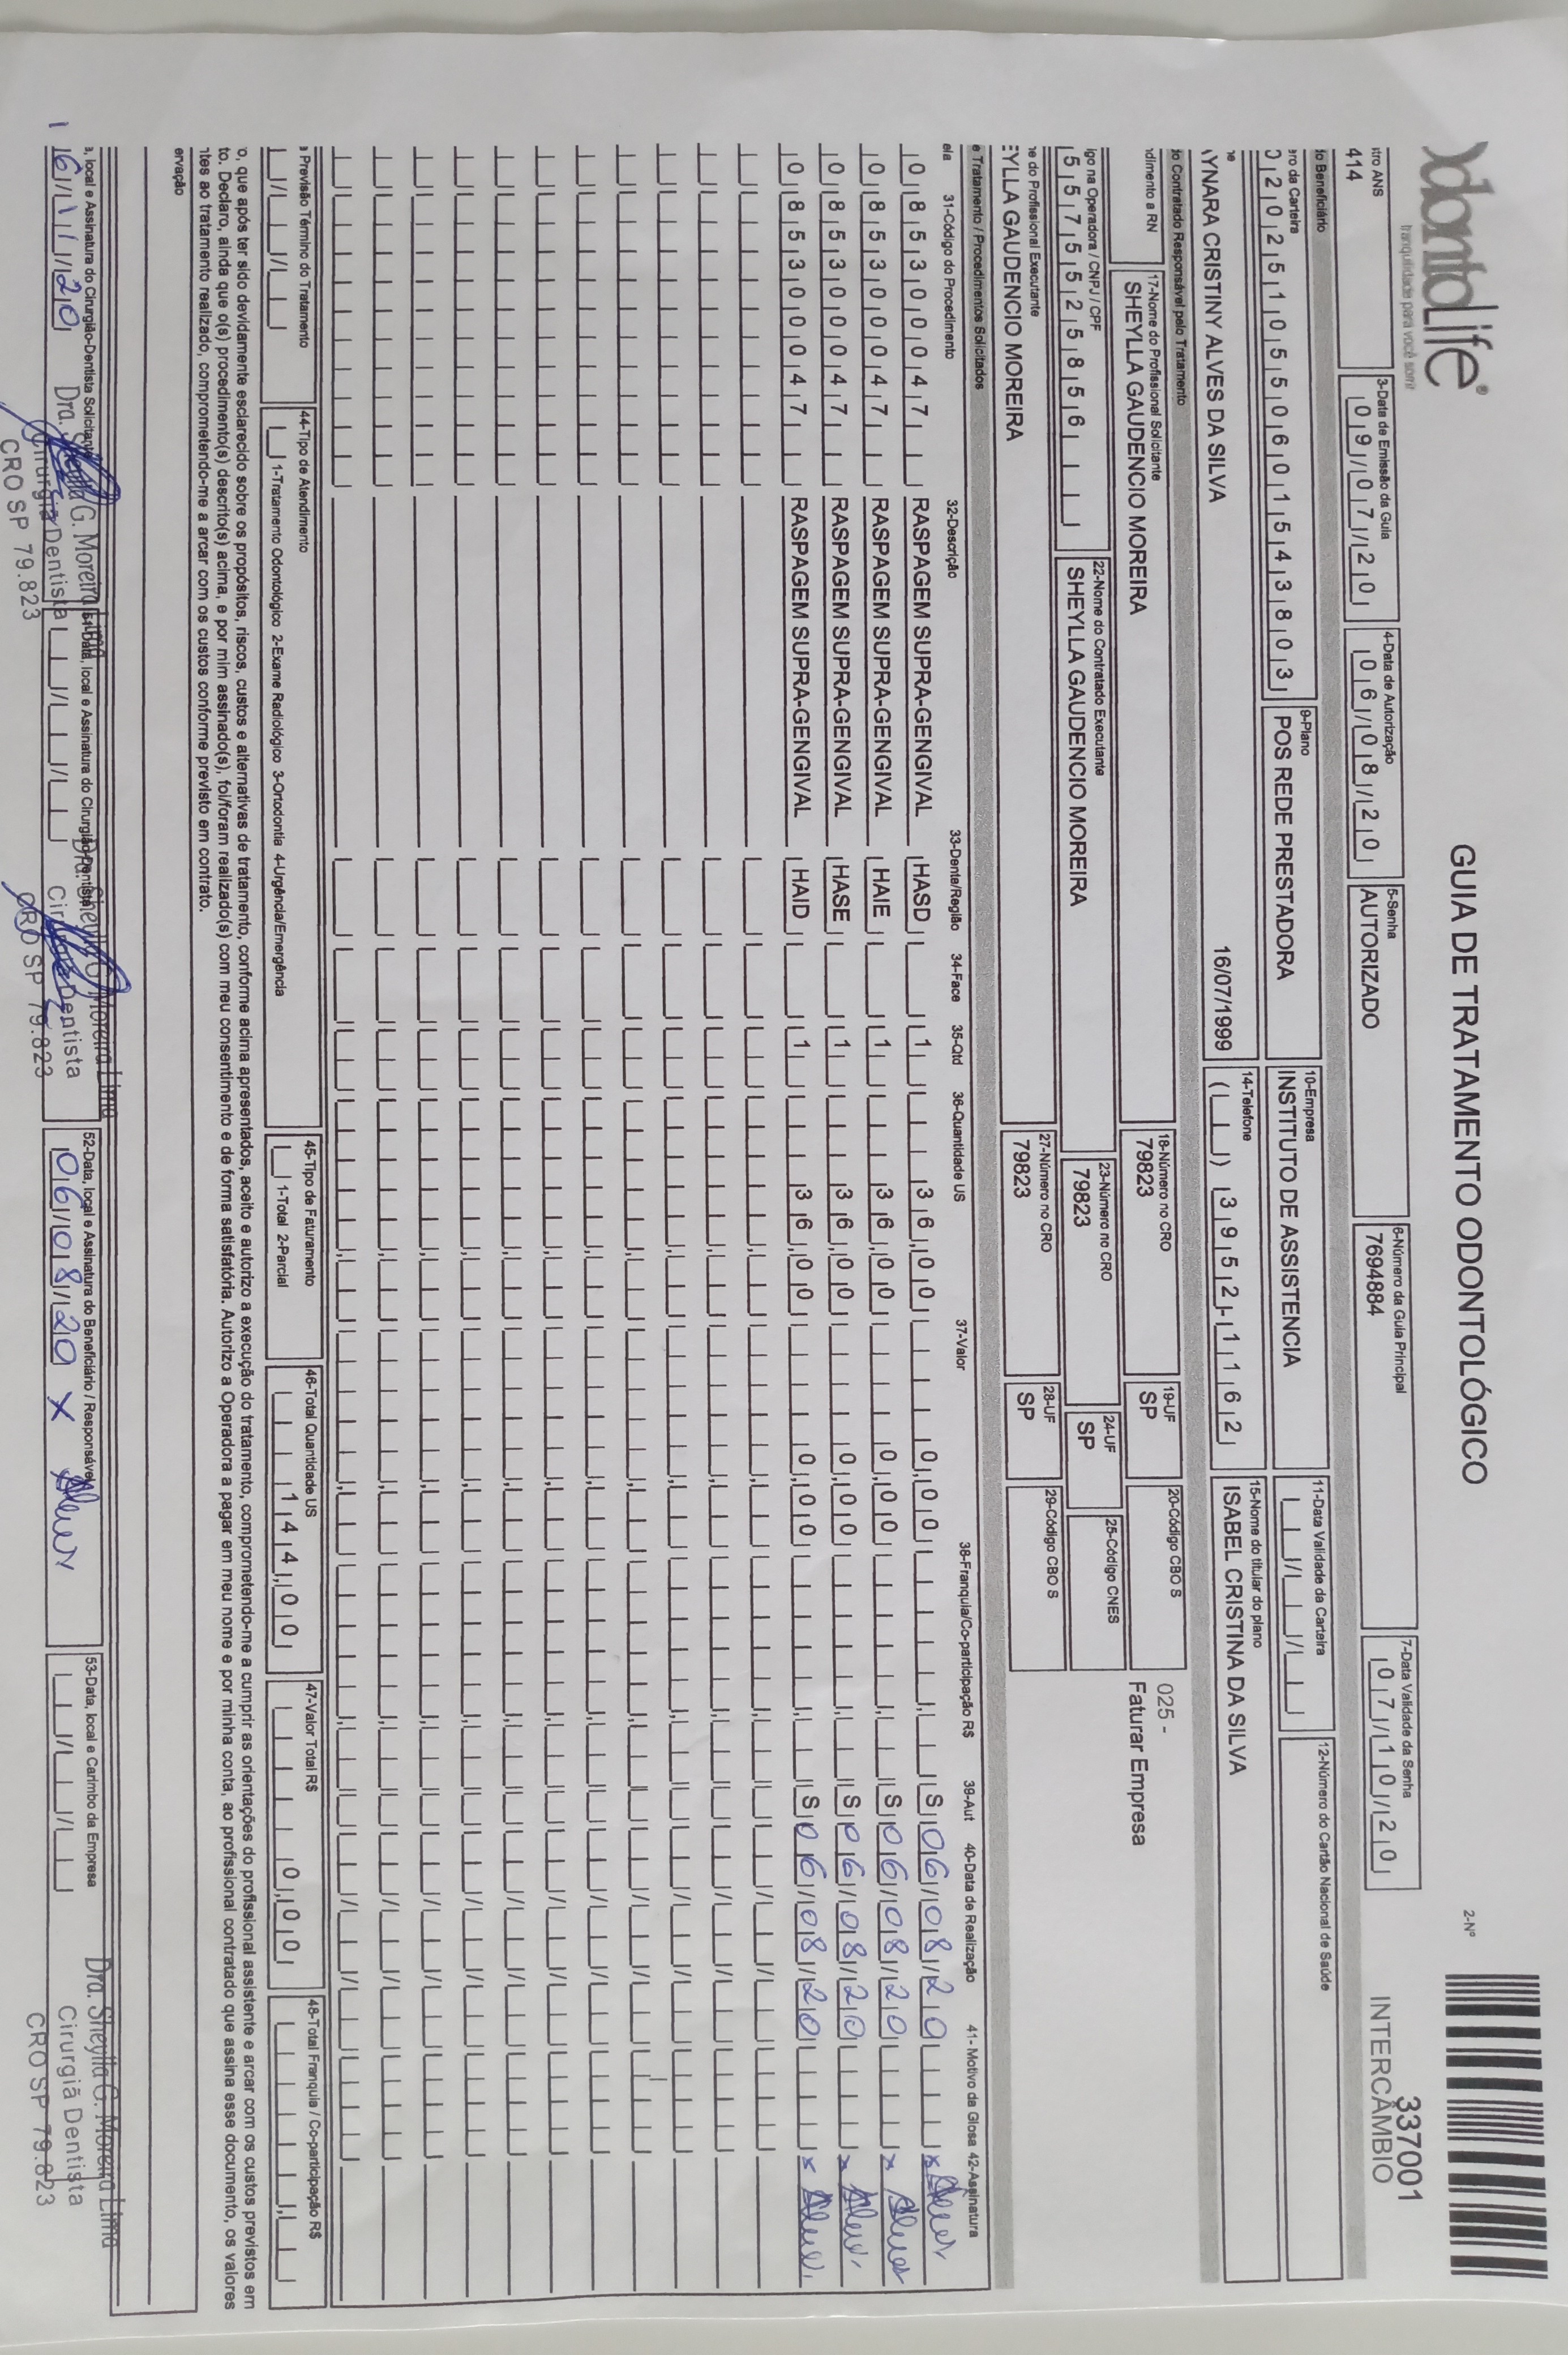 OdontoLife®
tranquilidade para você sorrir
GUIA DE TRATAMENTO ODONTOLÓGICO
2-Nº
337001
INTERCÂMBIO
stro ANS
414
3-Data de Emissão da Guia
09/07/20
4-Data de Autorização
06/08/20
5-Senha
AUTORIZADO
6-Número da Guia Principal
7694884
7-Data Validade da Senha
07/10/20
do Beneficiário
ero da Carteira
0202510550601543803
9-Plano
POS REDE PRESTADORA
10-Empresa
INSTITUTO DE ASSISTENCIA
11-Data Validade da Carteira
12-Número do Cartão Nacional de Saúde
YNARA CRISTINY ALVES DA SILVA
16/07/1999
14-Telefone
( ) 3952-1162
15-Nome do titular do plano
ISABEL CRISTINA DA SILVA
do Contratado Responsável pelo Tratamento
dimento a RN
17-Nome do Profissional Solicitante
SHEYLLA GAUDENCIO MOREIRA
18-Número no CRO
79823
19-UF
SP
20-Código CBO S
025 -
Faturar Empresa
igo na Operadora / CNPJ / CPF
55755258 56
22-Nome do Contratado Executante
SHEYLLA GAUDENCIO MOREIRA
23-Número no CRO
79823
24-UF
SP
25-Código CNES
e do Profissional Executante
EYLLA GAUDENCIO MOREIRA
27-Número no CRO
79823
28-UF
SP
29-Código CBO S
e Tratamento / Procedimentos Solicitados
ela 31-Código do Procedimento 32-Descrição 33-Dente/Região 34-Face 35-Qtd 36-Quantidade US 37-Valor 38-Franquia/Co-participação R$ 39-Aut 40-Data de Realização 41- Motivo da Glosa 42-Assinatura
0 85300047 RASPAGEM SUPRA-GENGIVAL HASD 1 36,00 0,00 S 06/08/20 x
0 85300047 RASPAGEM SUPRA-GENGIVAL HAIE 1 36,00 0,00 S 06/08/20 x
0 85300047 RASPAGEM SUPRA-GENGIVAL HASE 1 36,00 0,00 S 06/08/20 x
0 85300047 RASPAGEM SUPRA-GENGIVAL HAID 1 36,00 0,00 S 06/08/20 x
a Previsão Término do Tratamento
44-Tipo de Atendimento
1-Tratamento Odontológico 2-Exame Radiológico 3-Ortodontia 4-Urgência/Emergência
45-Tipo de Faturamento
1-Total 2-Parcial
46-Total Quantidade US
144,00
47-Valor Total R$
0,00
48-Total Franquia / Co-participação R$
o, que após ter sido devidamente esclarecido sobre os propósitos, riscos, custos e alternativas de tratamento, conforme acima apresentados, aceito e autorizo a execução do tratamento, comprometendo-me a cumprir as orientações do profissional assistente e arcar com os custos previstos em
to. Declaro, ainda que o(s) procedimento(s) descrito(s) acima, e por mim assinado(s), foi/foram realizado(s) com meu consentimento e de forma satisfatória. Autorizo a Operadora a pagar em meu nome e por minha conta, ao profissional contratado que assina esse documento, os valores
ntes ao tratamento realizado, comprometendo-me a arcar com os custos conforme previsto em contrato.
ervação
a, local e Assinatura do Cirurgião-Dentista Solicitante
Dra. Sheylla G. Moreira Lima
Cirurgiã Dentista
CRO SP 79.823
51-Data, local e Assinatura do Cirurgião-Dentista
Dra. Sheylla G. Moreira Lima
Cirurgiã Dentista
CRO SP 79.823
52-Data, local e Assinatura do Beneficiário / Responsável
06/08/20 x
53-Data, local e Carimbo da Empresa
Dra. Sheylla G. Moreira Lima
Cirurgiã Dentista
CRO SP 79.823